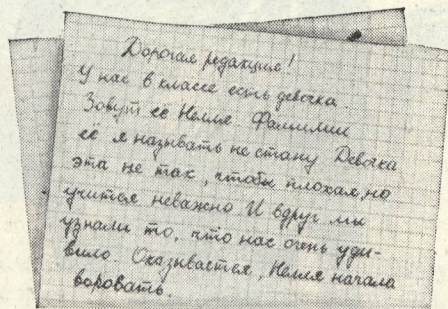 Дорогая редакция!
У нас в классе есть девочка.
Зовут её Нелля. Фамилии
её я называть не стану. Девочка
эта не так, чтобы плохая, но
учится неважно. И вдруг мы
узнали то, что нас очень уди-
вило. Оказывается, Нелля начала
воровать.